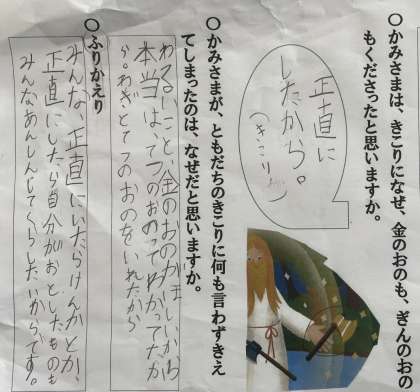 ○かみさまは、きこりになぜ、金のおのも、ぎんのおの
もくださったと思いますか。
正直に
したから。
(きこりが)
○かみさまが、ともだちのきこりに何も言わずきえ
てしまったのは、なぜだと思いますか。
わるいこと、金のおのがほしいから
本当は、てつのおのってわかってたか
ら。わざとてつのおのをいれたから
○ふりかえり
みんな、正直にいたらけんかとか、
正直にしたら自分がおとしたものも
みんなあんしんしてくらしたいからです。